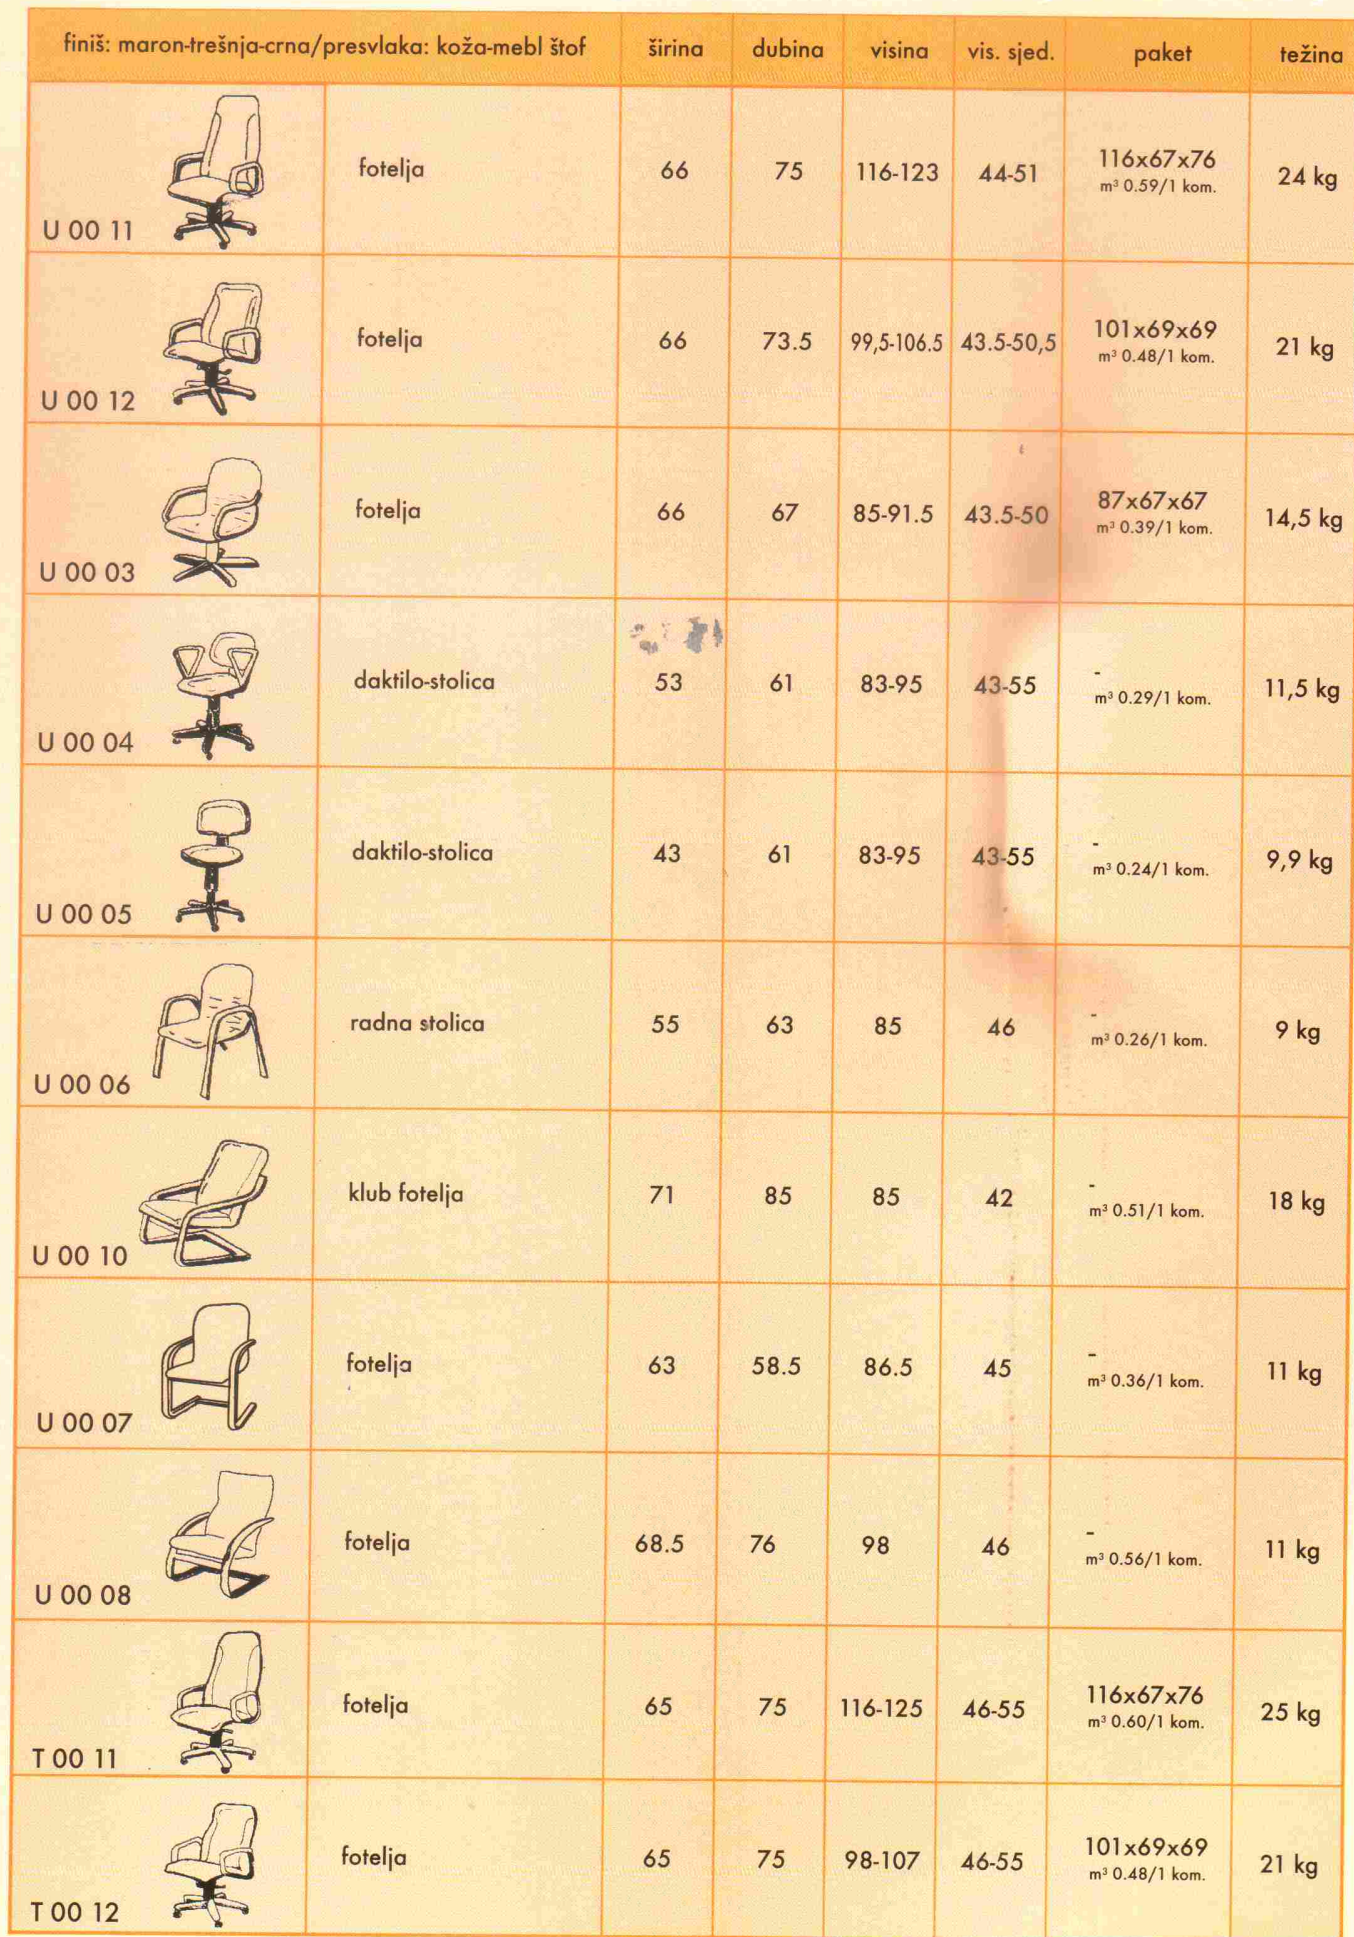 finiš: maron-trešnja-crna/presvlaka: koža-mebl štof širina dubina visina vis. sjed. paket težina
U 00 11 fotelja 66 75 116-123 44-51 116x67x76 24 kg
m³ 0.59/1 kom.
U 00 12 fotelja 66 73.5 99,5-106.5 43.5-50,5 101x69x69 21 kg
m³ 0.48/1 kom.
U 00 03 fotelja 66 67 85-91.5 43.5-50 87x67x67 14,5 kg
m³ 0.39/1 kom.
U 00 04 daktilo-stolica 53 61 83-95 43-55 - 11,5 kg
m³ 0.29/1 kom.
U 00 05 daktilo-stolica 43 61 83-95 43-55 - 9,9 kg
m³ 0.24/1 kom.
U 00 06 radna stolica 55 63 85 46 - 9 kg
m³ 0.26/1 kom.
U 00 10 klub fotelja 71 85 85 42 - 18 kg
m³ 0.51/1 kom.
U 00 07 fotelja 63 58.5 86.5 45 - 11 kg
m³ 0.36/1 kom.
U 00 08 fotelja 68.5 76 98 46 - 11 kg
m³ 0.56/1 kom.
T 00 11 fotelja 65 75 116-125 46-55 116x67x76 25 kg
m³ 0.60/1 kom.
T 00 12 fotelja 65 75 98-107 46-55 101x69x69 21 kg
m³ 0.48/1 kom.